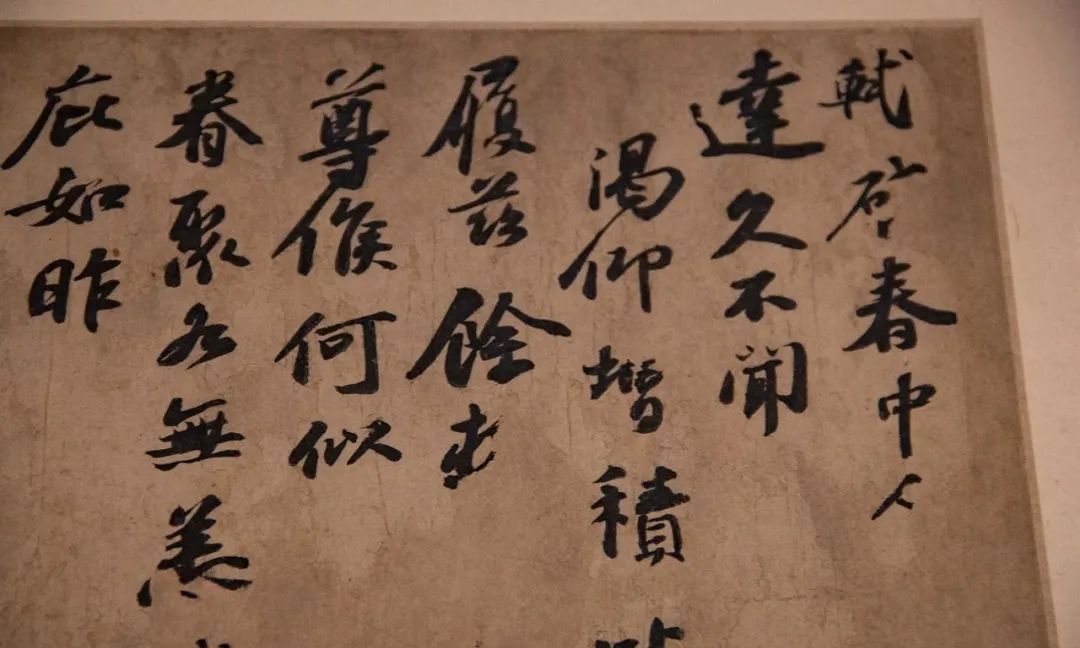 軾啓春中人
達久不聞
渴仰增積
履茲餘
尊候何似
眷聚各無恙
庇如昨